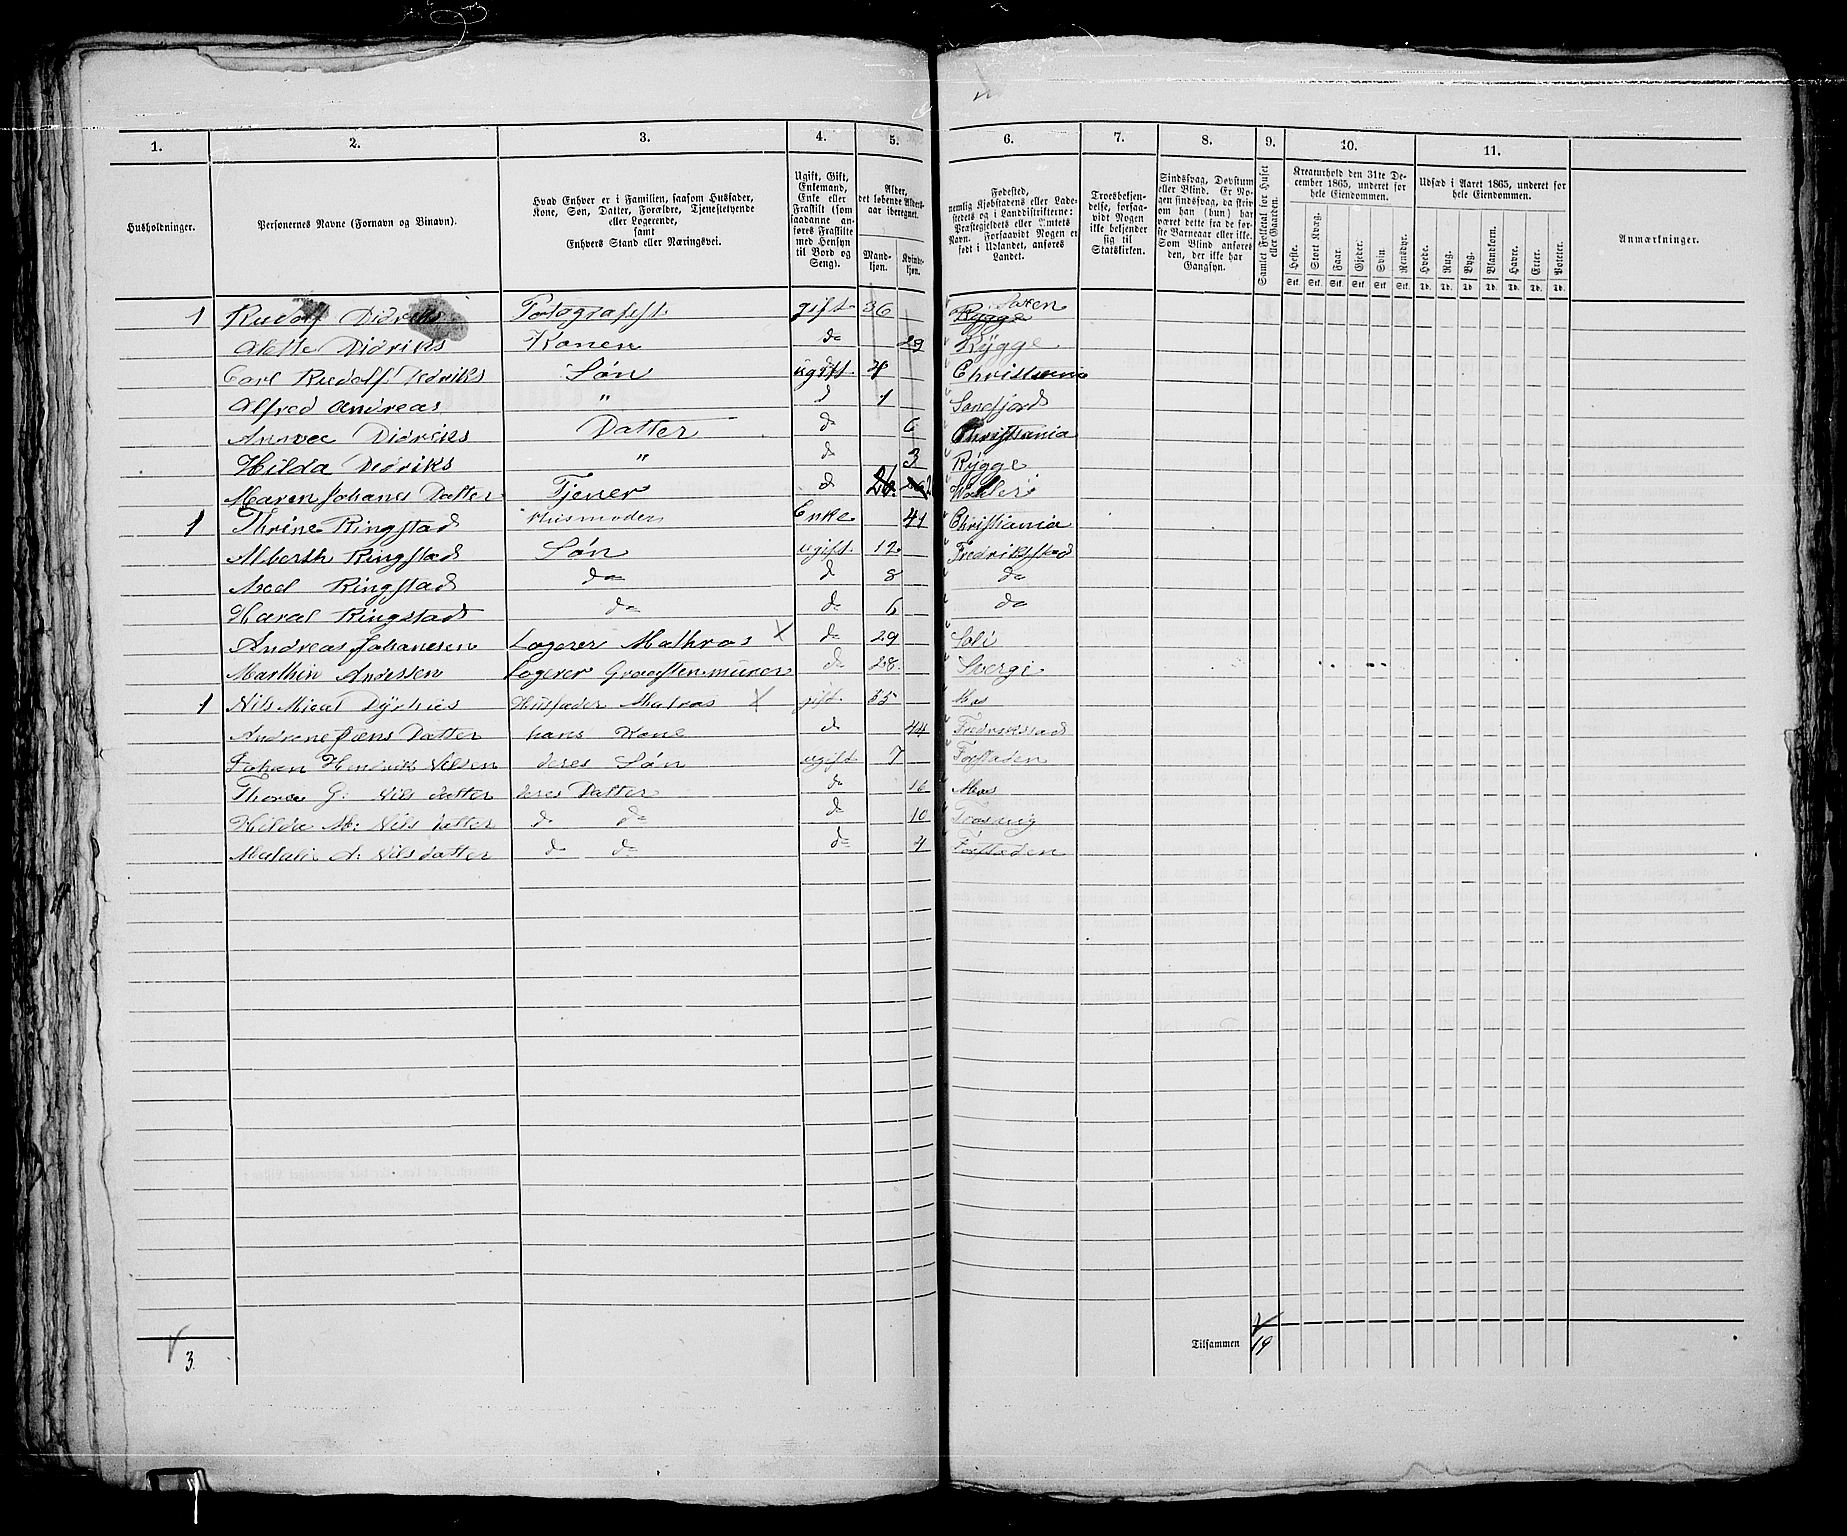 1. 2. 3. 4. 5. 6. 7. 8. 9. 10. 11.
Husholdninger.
Personernes Navne (Fornavn og Binavn).
Hvad Enhver er i Familien, saasom Husfader,
Kone, Søn, Datter, Forældre, Tjenestetyende
eller Logerende,
samt
Enhvers Stand eller Næringsvei.
Ugift, Gift,
Enkemand,
Enke eller
Fraskilt (som
saadanne an-
føres Fraskilte
med Hensyn
til Bord og
Seng).
Alder,
det løbende Alders-
aar iberegnet.
Mand-
kjøn.
Kvinde-
kjøn.
Fødested,
nemlig Kjøbstadens eller Lade-
stedets og i Landdistrikterne:
Præstegjeldets eller Amtets
Navn. Forsaavidt Nogen er
født i Udlandet, anføres
Landet.
Troesbekjen-
delse, forsaa-
vidt Nogen
ikke bekjender
sig til
Statskirken.
Sindssvag, Døvstum
eller Blind. Er No-
gen sindssvag, da skriv
om han (hun) har
været dette fra de før-
ste Barneaar eller ikke.
Som Blind anføres
den, der ikke har
Gangsyn.
Samlet Folketal for Huset
eller Gaarden.
Kreaturhold den 31te De-
cember 1865, underet for
hele Eiendommen.
Heste. Stort Kvæg. Faar. Gjeder. Svin. Rensdyr.
Stk. Stk. Stk. Stk. Stk. Stk.
Udsæd i Aaret 1865, underet for
hele Eiendommen.
Hvede. Rug. Byg. Blandkorn. Havre. Erter. Poteter.
Td. Td. Td. Td. Td. Td. Td.
Anmærkninger.
1 Rudolf Didriks Fotografist gift 36 Rygge
Alette Didriks Konen do 29 Rygge
Carl Rudolf Didriks Søn ugift 4 Christiania
Alfred Andreas " d 1 Sanefjord
Didriks Datter d 6 Christiania
Hilda Didriks " d 3 Rygge
Maren Johanes Datter Tjener d 26
1 Thrine Ringstad Husmoder Enke 41 Christiania
Alberth Ringstad Søn ugift 12 Fredrikstad
Axel Ringstad do d 8 do
Haral Ringstad do d 6 do
Andreas Johanesen Logerer Mathros X d 29
Marthin Andersen Logerer d 28 Svergi
1 Nils Husfader Matros X gift 55 Mos
Andrene Jæns Datter hans Kone d 44 Fredrikstad
Johan Hendrik Nilsen deres Søn ugift 7 Forstaden
Thora G: Nils datter deres Datter d 16 Mos
Hilda M: Nils datter d do d 10 Trosvig
Matali A: Nils datter d d d 4 Forstaden
3
Tilsammen 19